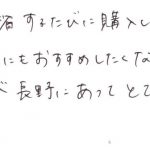 するたびに購入し
にもおすすめしたくな
が長野にあってとて